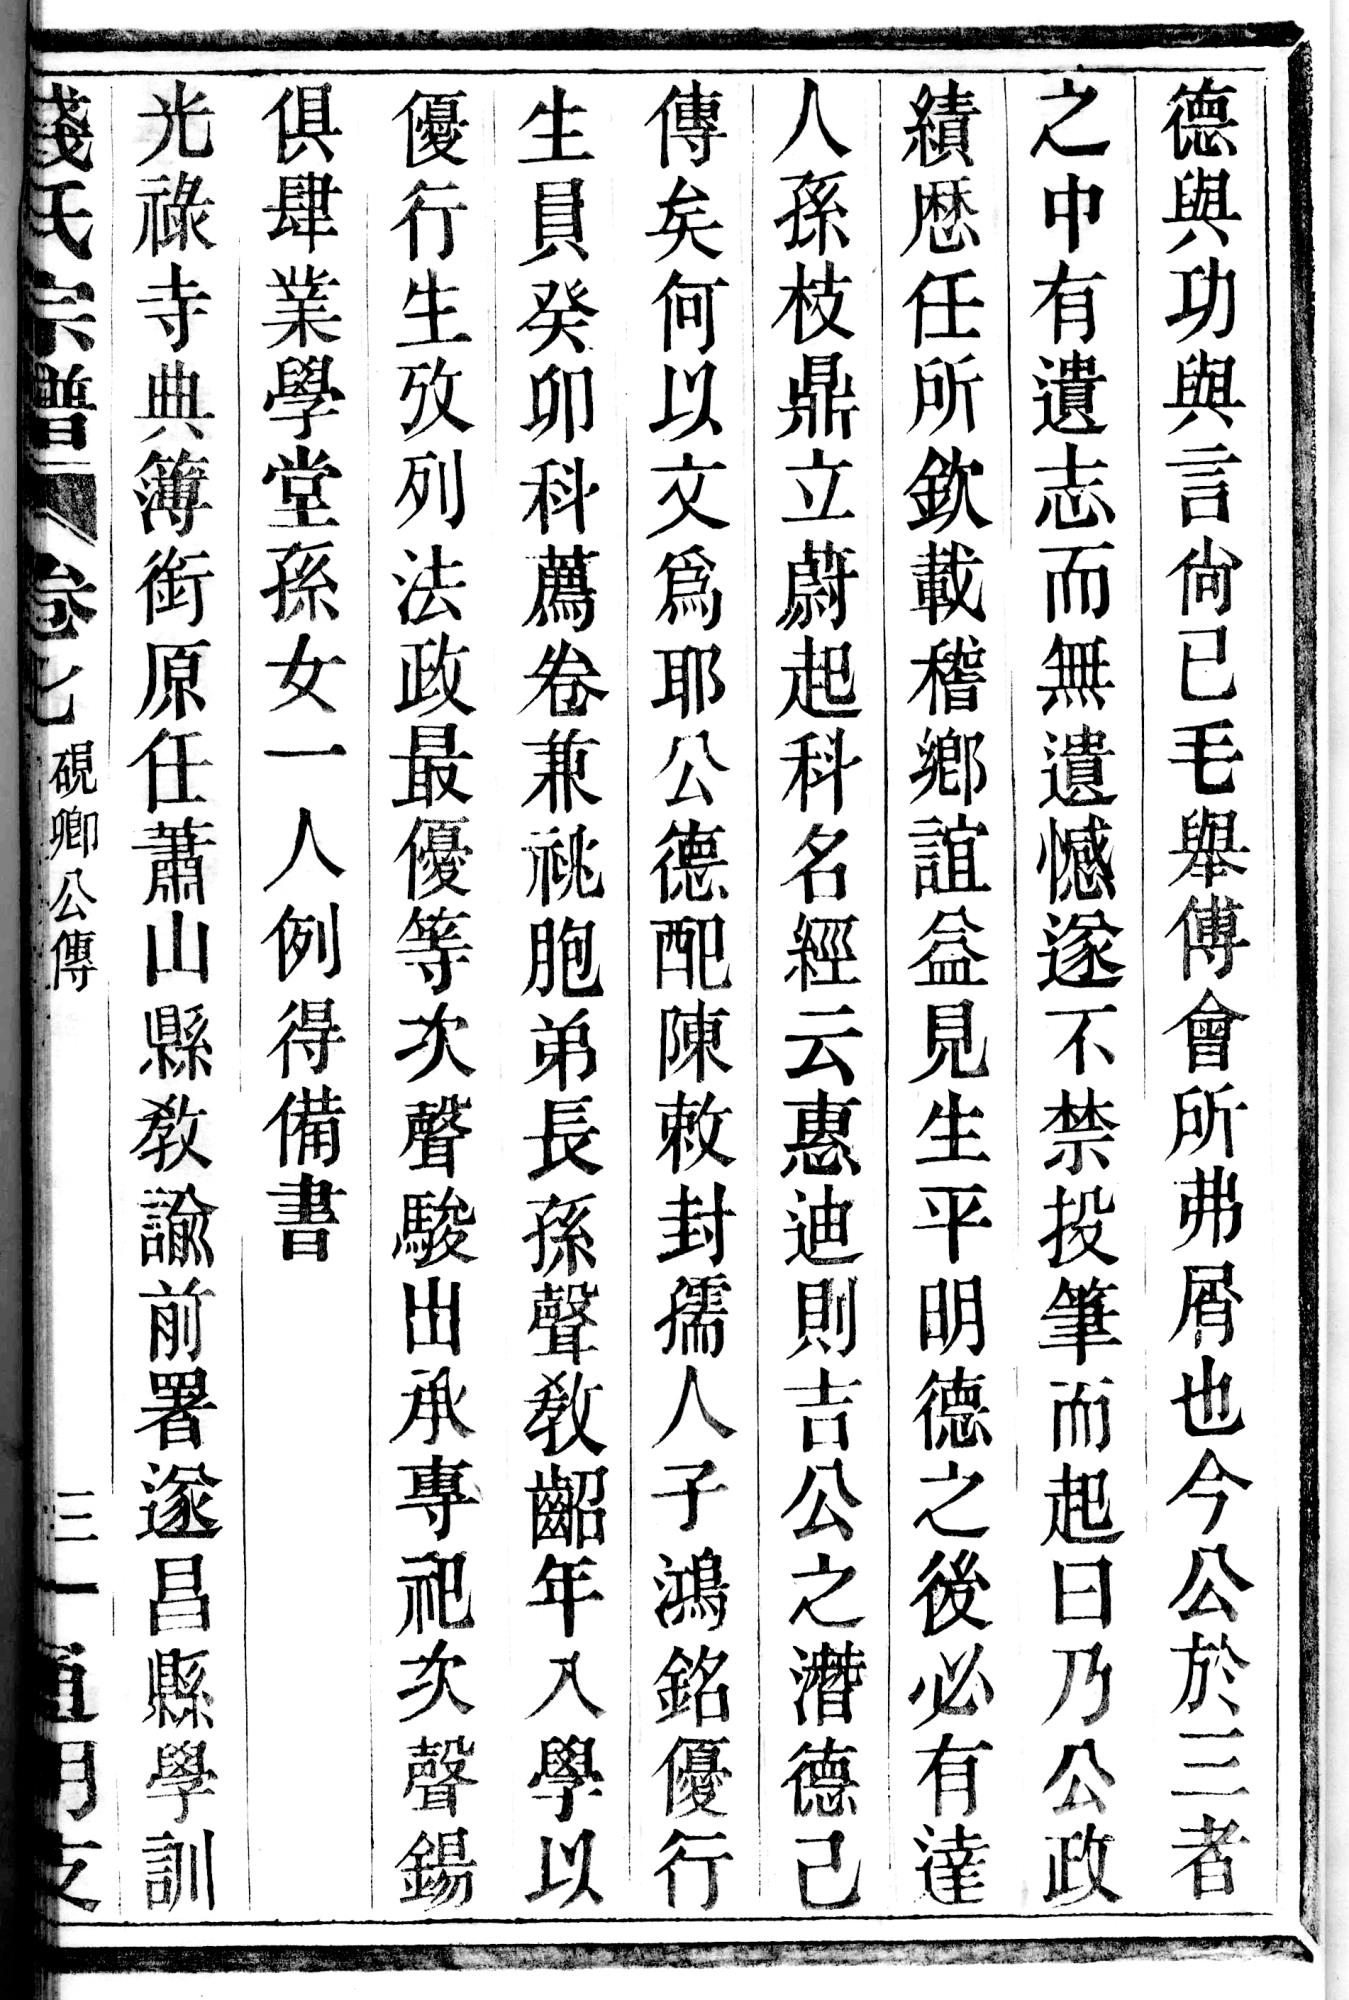 德與功與言尙已毛舉傅會所弗屑也今公於三者
之中有遺志而無遺憾遂不禁投筆而起曰乃公政
績歷任所欽載稽鄉誼益見生平明德之後必有達
人孫枝鼎立蔚起科名經云惠迪則吉公之潛德己
傳矣何以文爲耶公德配陳敕封孺人子鴻銘優行
生員癸卯科薦卷兼祧胞弟長孫聲教齠年入學以
優行生攷列法政最優等次聲駿出承專祀次聲錫
俱肆業學堂孫女一人例得備書
光祿寺典簿銜原任蕭山縣教諭前署遂昌縣學訓
錢氏宗譜 卷七 硯卿公傳 三一 通明支